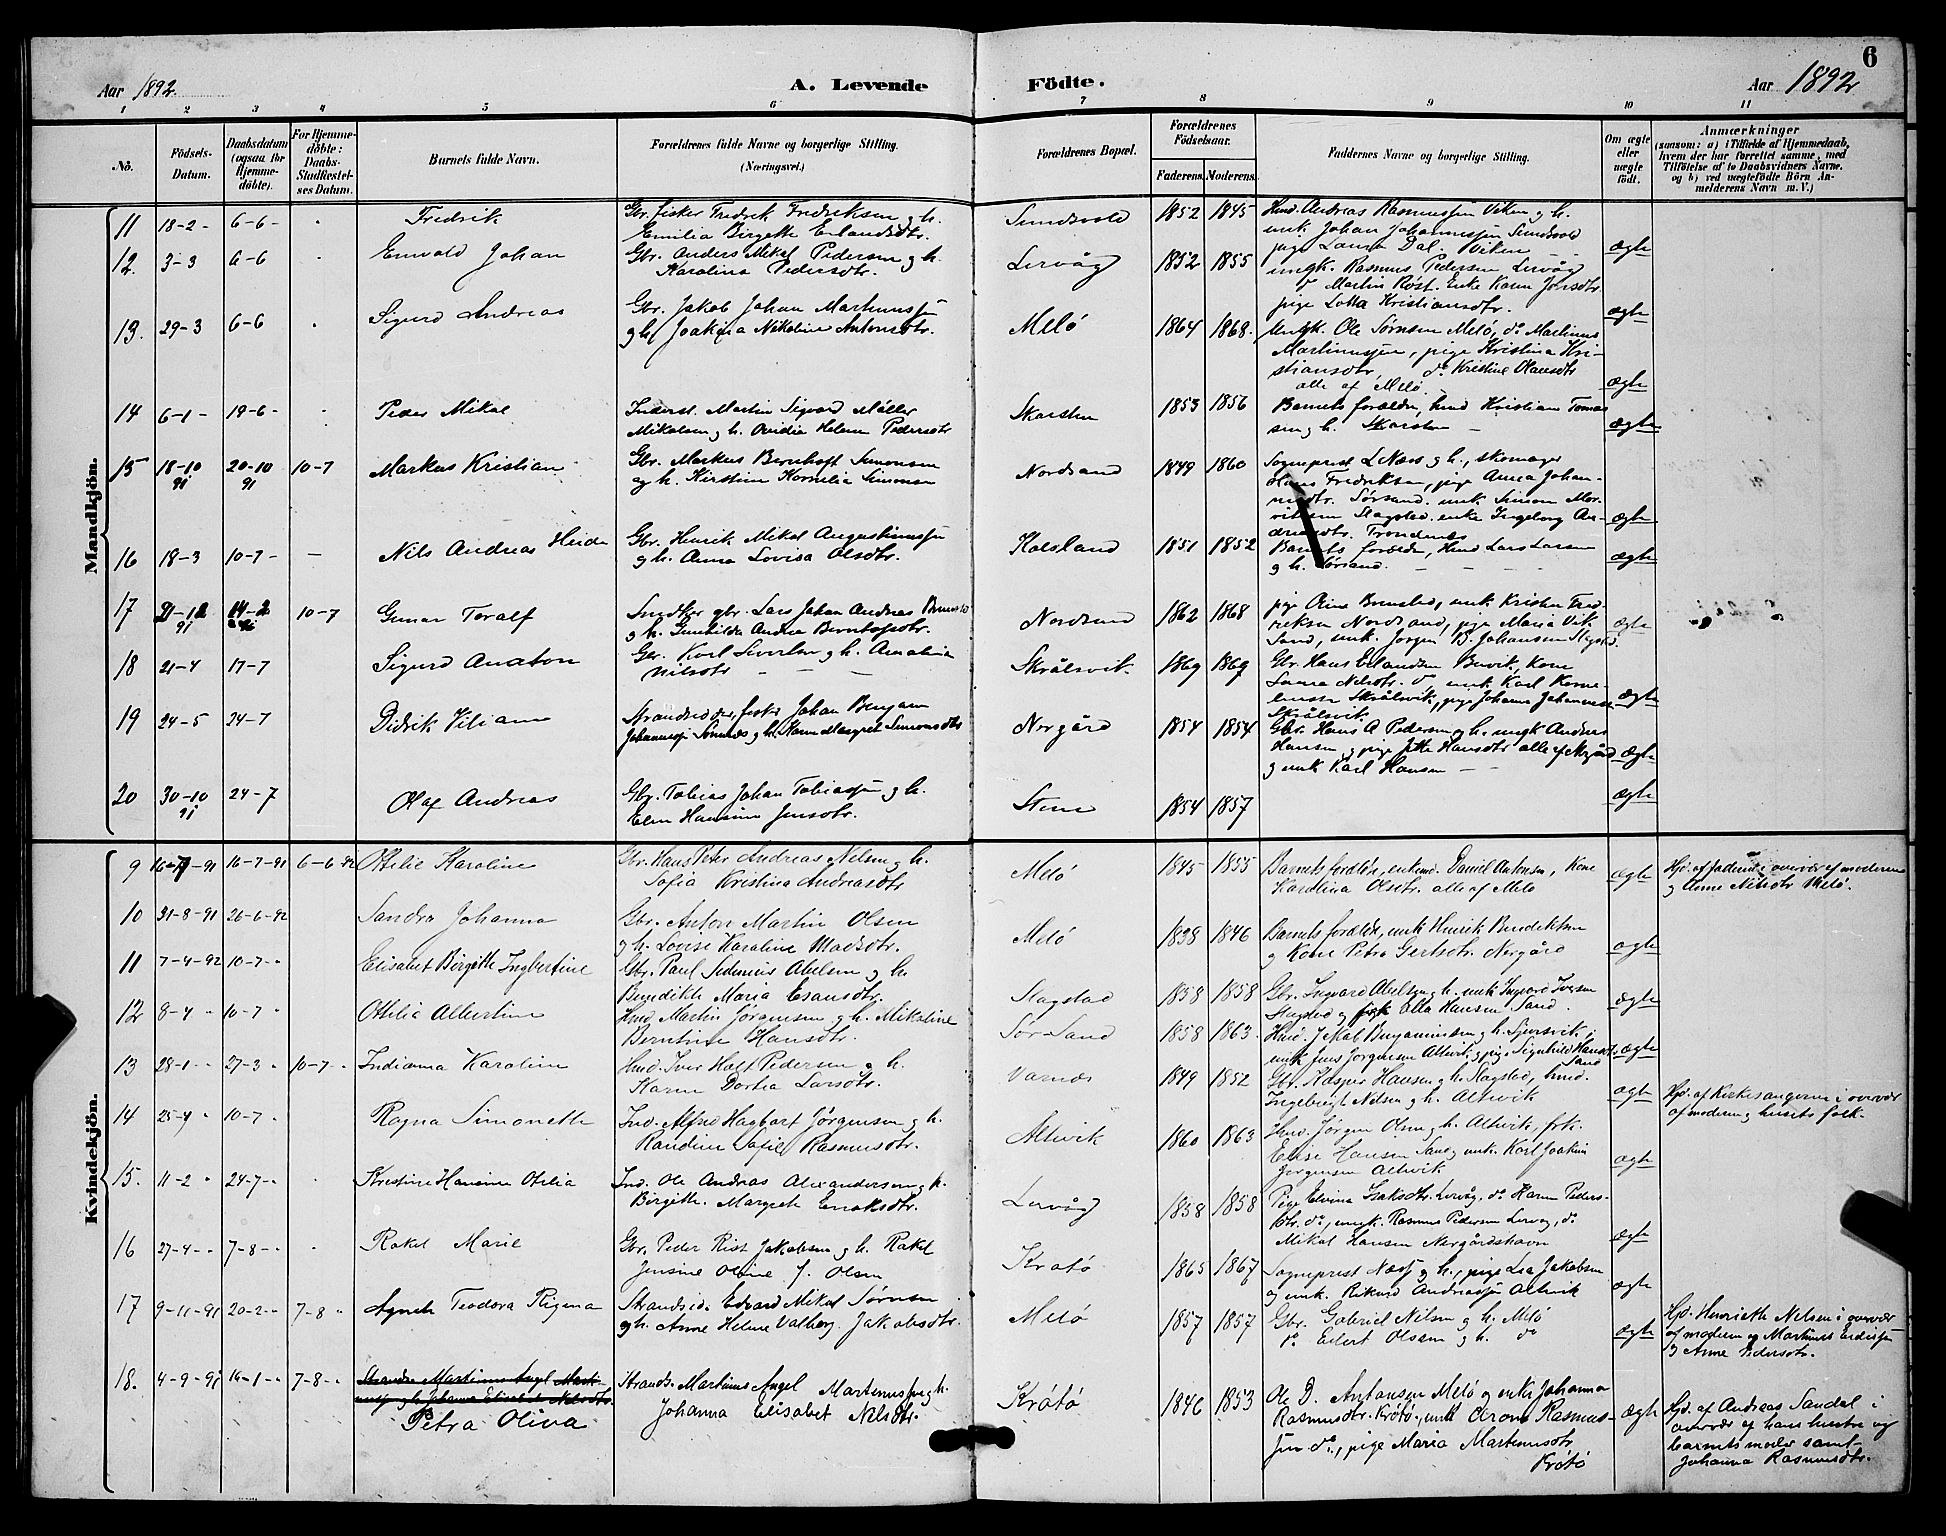 6
Aar 1892. A. Levende Födte. Aar 1892
1 2 3 4 5 6 7 8 9 10 11
No.
Födsels-Datum.
Daabsdatum (ogsaa for Hjemme-döbte).
For Hjemme-döbte: Daabs-Stadfæstelses Datum.
Barnets fulde Navn.
Forældrenes fulde Navne og borgerlige Stilling. (Næringsvei.)
Forældrenes Bopæl.
Forældrenes Födselsaar.
Faderens. Moderens.
Faddernes Navne og borgerlige Stilling.
Om ægte eller uægte födt.
Anmærkninger
(saasom: a) i Tilfælde af Hjemmedaab,
hvem der har forrettet samme, med
Tilföielse af to Daabsvidners Navne.
og b) ved uægtefödte Börn An-
melderens Navn m. V.)
Mandkjön.
11 18-2- 6-6- Fredrik
Gbr. fisker Fredrik Fredriksen g h.
Emilia Birgette Erlandsdtr.
Sundsvold 1852 1845
Hmd. Andreas Rasmussen Viken g h.
umk Johan Johannessen Sundsvold
pige Laura Dal. Viken
ægte
12. 3-3 6-6 Emvald Johan
Gbr. Anders Mikal Pedersen g h.
Karolina Pedersdtr.
Lervåg 1852 1855
ungk. Rasmus Pedersen Lervåg
do Martin Röst. Enke Karen Jonsdtr
pige Lotta Kristiansdtr.
ægte
13. 29-3 6-6 Sigurd Andreas
Gbr. Jakob Johan Martinussen
g h Joakina Nikoline Antonsdtr.
Melö 1864 1868.
Ungk. Ole Sörensen Melö, do Martinus
Martinussen, pige Kristina Kri-
stiansdtr, do Kristine Olausdtr
alle af Melö
ægte
14 6-1- 19-6- Peder Mikal
Inderst. Martin Sigvard Möller
Mikalsen g h. Ovidia Helene Pedersdtr
Skarsten 1853 1856
Barnets forældre, hmd Kristian Tomas
sen g h. Skarsten
ægte
15 18-10 91 20-10 91 10-7 Markus Kristian
Gbr. Markus Bernhoft Simonsen
og h. Kirstine Kornelia Simonsen
Nordsand 1849 1860
Sogneprest L Næss g h., skomager
Hans Fredriksen, pige Anna Johan-
nesdtr. Sörsand. umk. Simon Mor-
Slagstad. enke Ingeborg An-
dreasdtr. Trondenes
ægte
16 18-3 10-7- Nils Andreas Heide
Gbr. Henrik Mikal Augustinussen
g h. Anna Lovisa Olsdtr.
Kalsland 1851 1852
Barnets forældre, Hmd Lars Larsen
g h. Sörsand.
ægte
17 21-12 91 14-2 10-7 Gunar Toralf
Snedker gbr. Lars Johan Andreas
g h. Gunhilda Andrea Berntofsdtr.
Nordsand 1862 1868
pige Oline Brensted, umk Kristen Fred-
riksen Nordsand, pige Maria Vik
Sand, umk. Jörgen B. Johansen
ægte
18 21-4 17-7 Sigurd Anaton
Gbr. Karl Sivertsen g h. Amalina
Nilsdtr
Skrålsvik. 1869 1869
Gbr. Hans Erlandsen Buvik, kone
Laura Nilsdtr. do umk Karl Korne-
liussen Skrålsvik, pige Johanna Johannesen
Skrålsvik
ægte
19 24-5 24-7 Didrik Viliam
Strandsidder, fisker Johan Benjam
g h. Karen Margret Simonsdtr
Norgård 1854 1854
Gbr. Hans A Pedersen g h. ungk Anders
Hansen g pige Jetta Hansdtr alle af Norgård
g umk Karl Hansen
ægte
20 30-10 91 24-7 Olaf Andreas
Gbr. Tobias Johan Tobiassen g h.
Elen Hansine Jensdtr.
Stene 1854 1857
ægte
Kvindekjön.
9 16-7-91 16-7-91 6-6 92 Ottilie Karoline
Gbr. Hans Peter Andreas Nelsen g h.
Sofia Kristina Andreasdtr
Melö 1845 1855
Barnets foreldre, enkemd. Daniel Antonsen, Kone
Karolina Olsdtr. alle af Melö
ægte
Hjd. af faderen i overvær af moderen
g Anne Nilsdtr Melö.
10 31-8-91 26-6-92 Sandra Johanna
Gbr. Anton Martin Olsen
g h. Lovise Karoline Madsdtr.
Melö 1838 1846
Barnets foreldre, umk Henrik Bendiktsen
g Kone Petra Gertsdtr. Norgård
ægte
11 7-4-92 10-7- Elisabet Birgitte Ingbertine
Gbr. Paul Sedenius Abelsen g h.
Benedikte Maria Esausdtr.
Slagstad 1858 1858
Gbr. Ingvard Abelsen g h. umk Ingvard Iversen
Slagstad g Ella Hansen Sand.
ægte
12 8-4 10-7- Ottilia Albertine
Hmd. Martin Jörgensen g h. Mikaline
Berntine Hansdtr.
Sör Sand 1858 1863.
Hmd. J Mal Benjaminsen g h. Sjursvik,
umk Jens Jörgensen Altevik, g pige Signhild Hansdtr
Sand
ægte
13 28-1- 27-3- 10-7- Indianna Karoline
Hmd. Iver Holt Pedersen g h.
Karen Dortea Larsdtr.
Varnæs 1849 1852
Gbr. Kasper Hansen g h. Slagstad, hmd.
Ingebrigt Nilsen g h. Altevik
ægte
Hjd. af Kirkesangeren i overvær
af moderen g husets folk.
14 25-4 10-7- Ragna Simonette
Ind. Alfred Hagbart Jörgensen g h.
Randine Sofie Rasmusdtr.
Altevik 1860 1863
Hmd. Jörgen Olsen g h. Altevik, frk.
Elise Hansen Sand g umk. Karl Joakim
Jörgensen Altevik
ægte
15. 11-2 24-7- Kristine Hansine Otilia
Ind. Ole Andreas Alexandersen g h.
Birgitte Margrete Enoksdtr.
Lervåg 1858 1858
Pige Elvina Isaksdtr. Lervåg, do Karen Peders-
dtr. do, umk. Rasmus Pedersen Lervåg, do
Mikal Hansen Norgårdshavn
ægte
16 27-4- 7-8- Rakel Marie
Gbr. Peder Rist Jakobsen g h. Rakel
Jensine Oline J. Olsen
Kratö 1865 1867
Sogneprest Næss g h., pige Lea Jakobsen
og umk. Rikard Andreassen Altevik
ægte
17 9-11-91 20-2- 7-8 Agnete Teodora Regina
Strandsid. Edvard Mikal Sörensen
g h. Anne Helene Valberg Jakobsdtr.
Melö 1857 1857
Gbr. Gabriel Nilsen g h. Melö
do. Edert Olsen g h. do
ægte
Hjd. Henriette Nelsen i overvær
af moderen og Martinus
g Anne Pedersdtr.
18. 4-9-91 14-1- 7-8-
Petra Oliva
Strands. Martinus Angel Martinussen g h.
Johanna Elisabet Nilsdtr.
Krötö 1846 1853
Ole D. Antonsen Melö og enke Johanna
Rasmusdtr. Krötö, umk Aron Rasmus-
sen do, pige Maria Martinusdtr
Krötö
ægte
Hjd. af Andreas Sandal i
overvær af hans hustru og
barnets moder samt
Johanna Rasmusdtr.